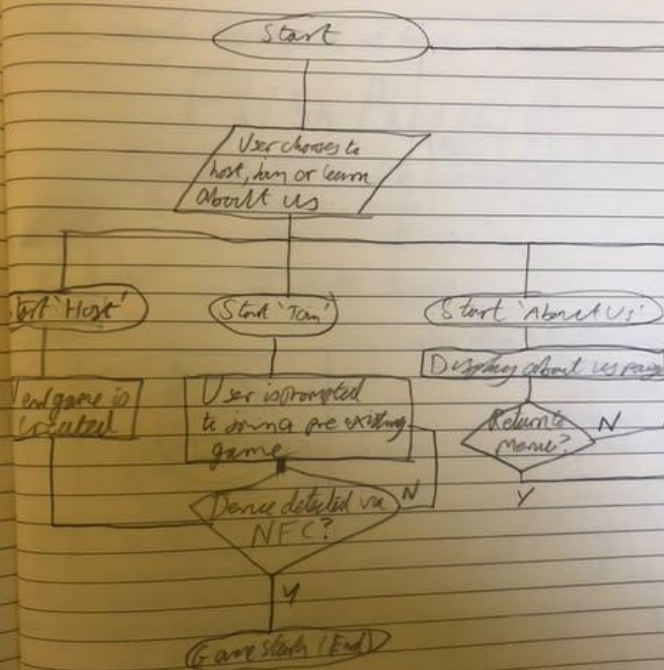 Start
User chooses to
host, join or learn
about us
Start 'Host'
Start 'Join'
Start 'About Us'
game is
created
User is prompted
to join a pre existing
game
Display about us page
Return to
menu?
N
Y
Device detected via
NFC?
N
Y
Game starts (End)